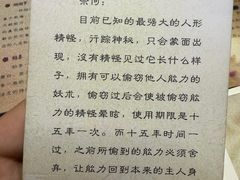 奈何:
目前已知的最強大的人形
精怪，行踪神秘，只会蒙面出
現，沒有精怪見过它长什么样
子，拥有可以偷窃他人能力的
妖术，偷窃过后会使被偷窃能
力的精怪晕眩，使用期限是十
五年一次。而十五年时间一
过，之前所偷到的能力必须舍
弃，让能力回到本来的主人身